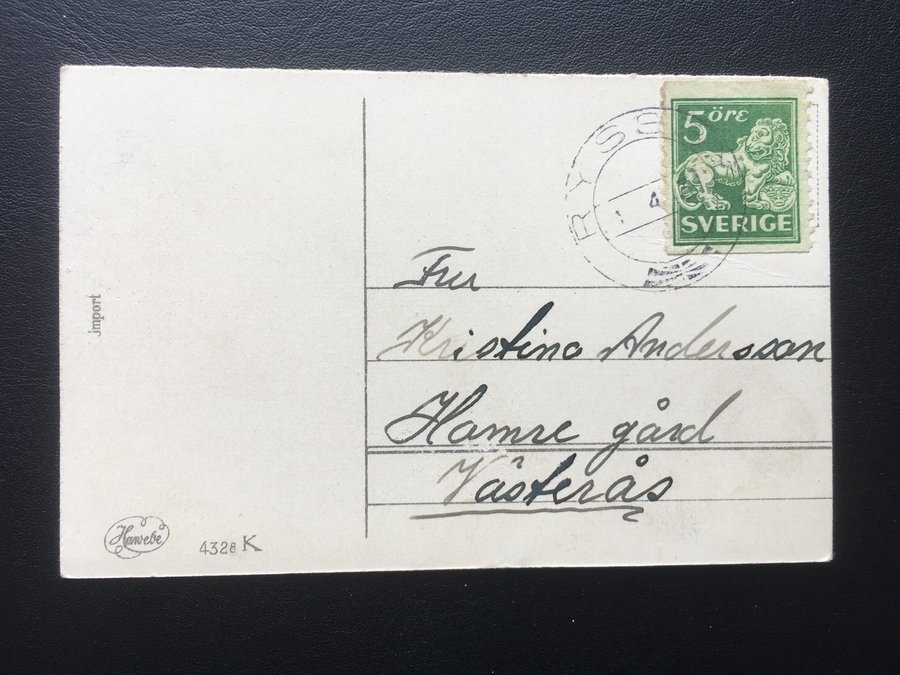 5 öre
SVERIGE
RYSS
1 4
Fru
Kristina Andersson
Hamre gård
Västerås
import
Hawebe
4328 K